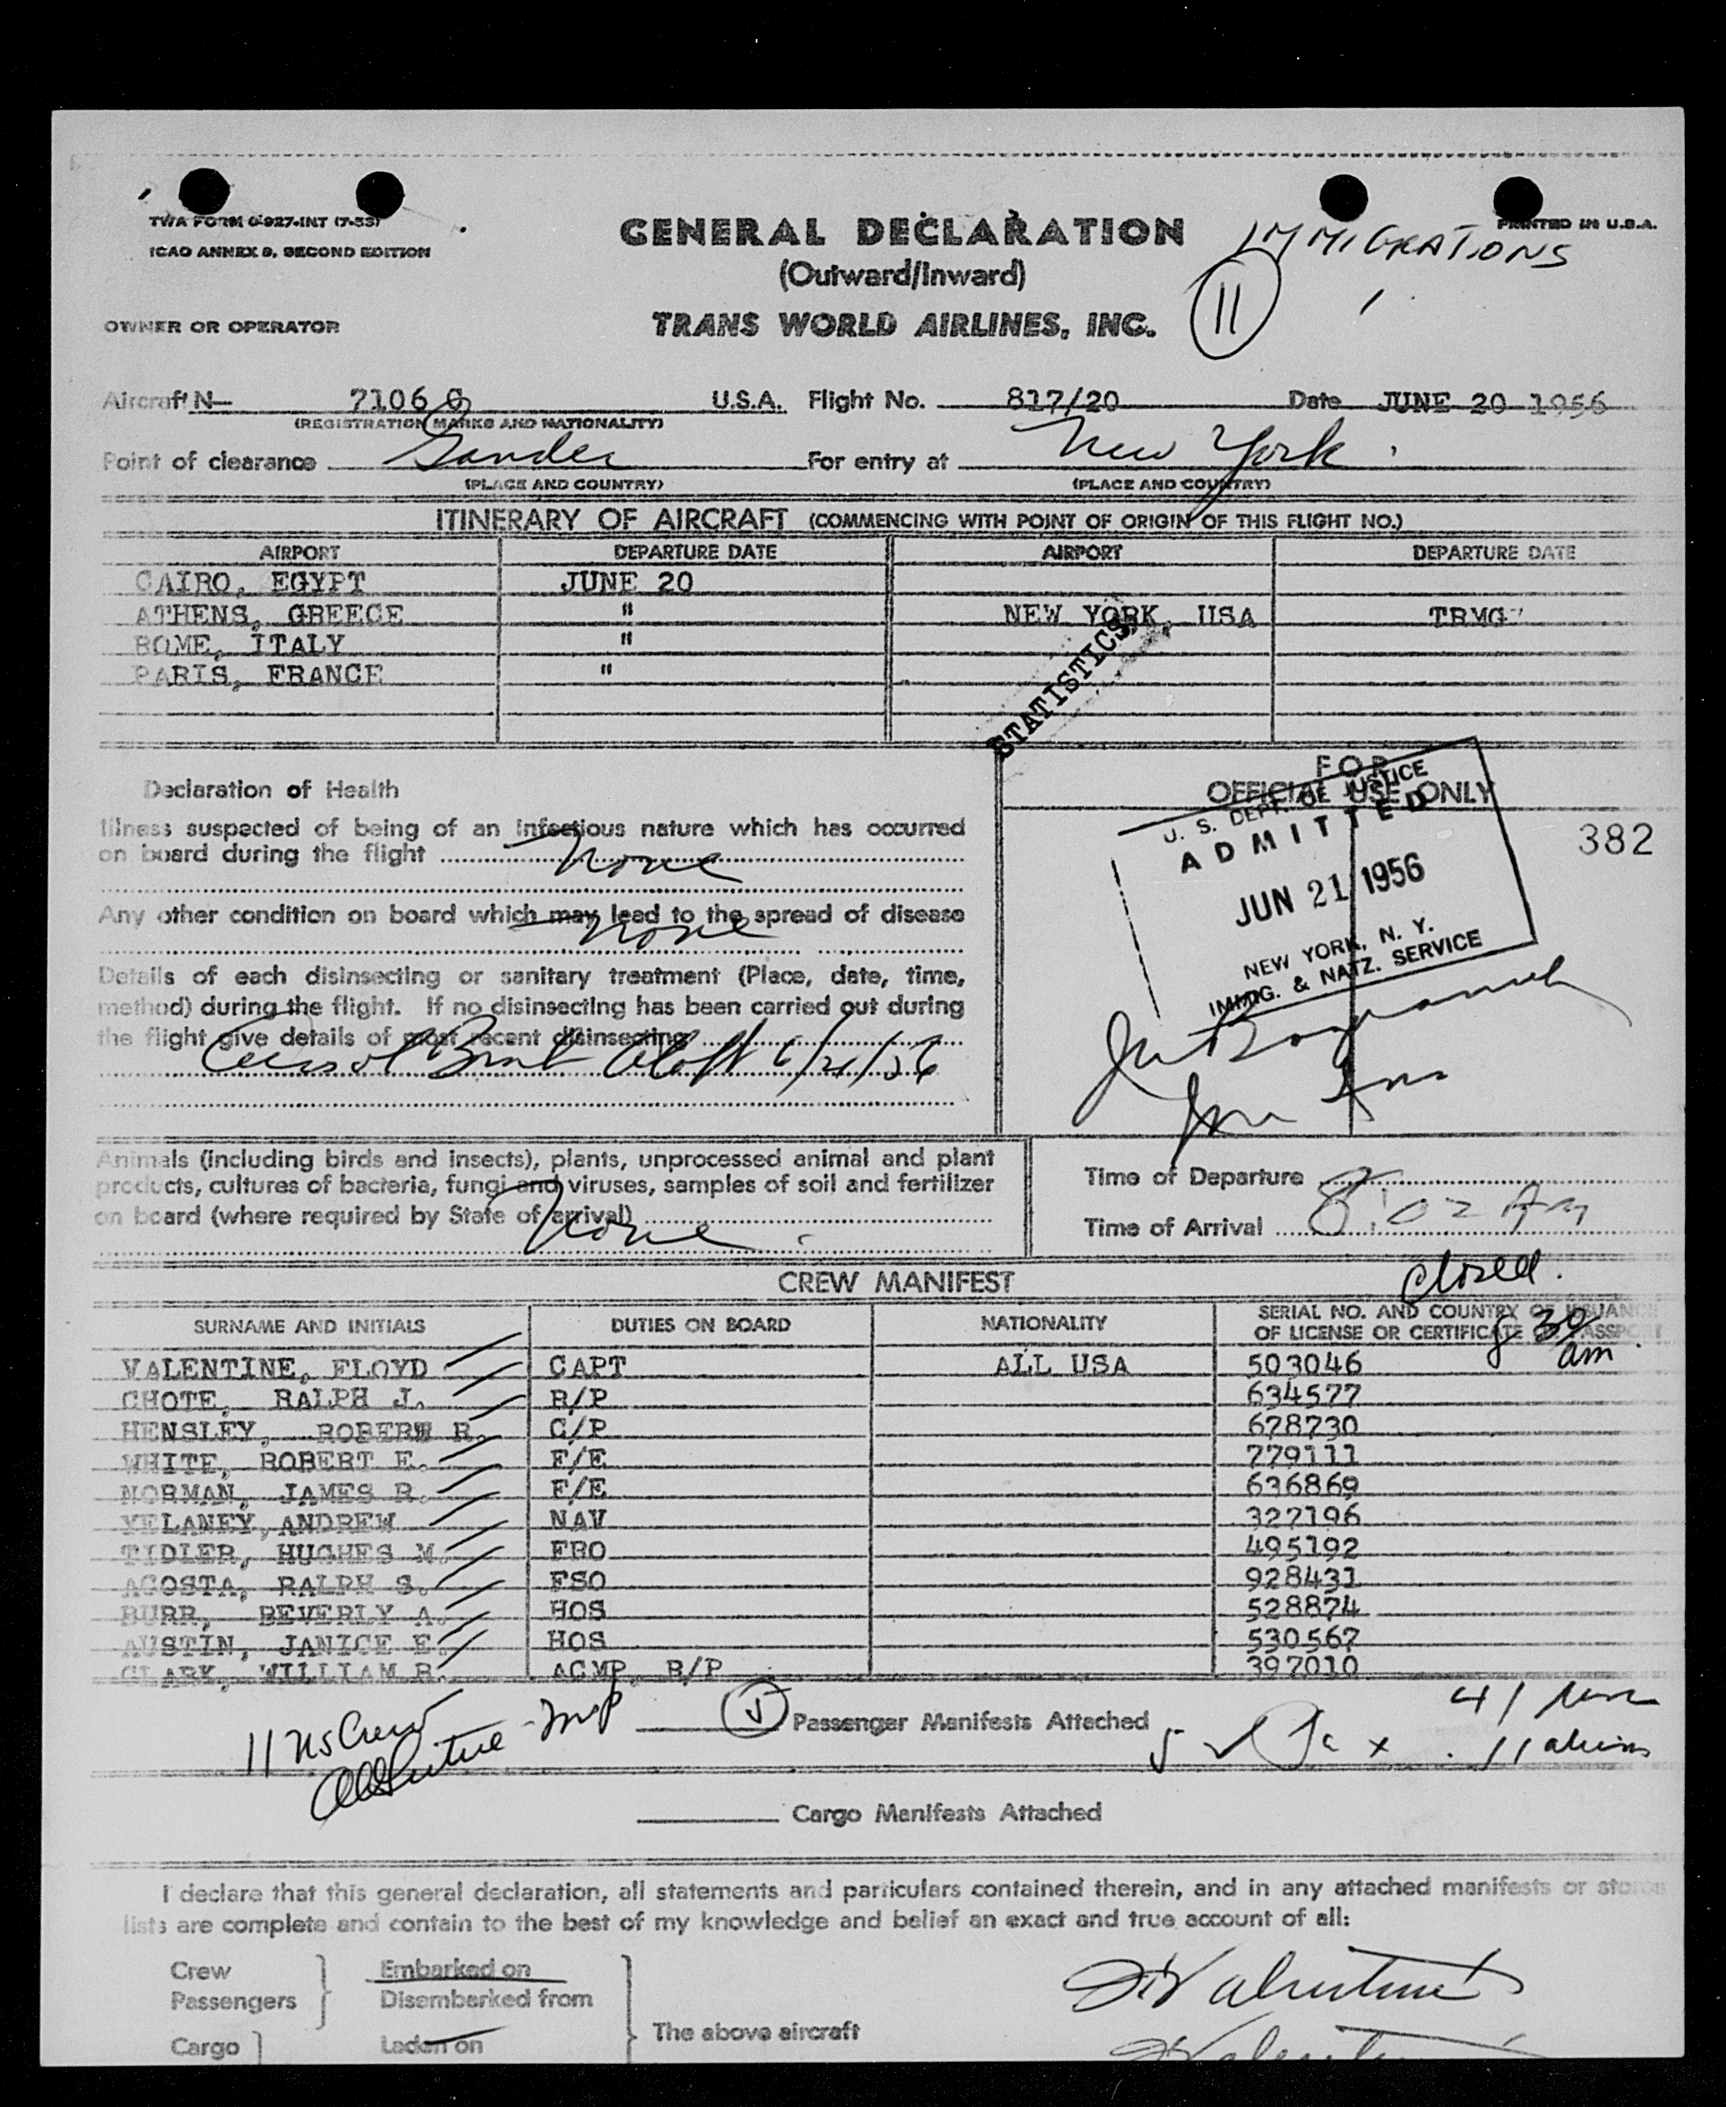 TWA FORM O-927-INT (7-53)
ICAO ANNEX 9, SECOND EDITION
PRINTED IN U.S.A.
GENERAL DECLARATION
(Outward/Inward)
IMMIGRATIONS
11
OWNER OR OPERATOR
TRANS WORLD AIRLINES, INC.
Aircraft N— 7106 C U.S.A. Flight No. 817/20 Date JUNE 20 1956
(REGISTRATION MARKS AND NATIONALITY)
Point of clearance Gander For entry at New York
(PLACE AND COUNTRY) (PLACE AND COUNTRY)
ITINERARY OF AIRCRAFT (COMMENCING WITH POINT OF ORIGIN OF THIS FLIGHT NO.)
AIRPORT DEPARTURE DATE AIRPORT DEPARTURE DATE
CAIRO, EGYPT JUNE 20
ATHENS, GREECE " NEW YORK, USA TRMG
ROME, ITALY "
PARIS, FRANCE "
STATISTICS
Declaration of Health
FOR
OFFICIAL USE ONLY
U. S. DEPT. OF JUSTICE
ADMITTED
JUN 21 1956
NEW YORK, N. Y.
IMMIG. & NATZ. SERVICE
382
Illness suspected of being of an infectious nature which has occurred
on board during the flight None
Any other condition on board which may lead to the spread of disease
None
Details of each disinsecting or sanitary treatment (Place, date, time,
method) during the flight. If no disinsecting has been carried out during
the flight give details of most recent disinsecting
Aerosol Bomb Aloft 6/21/56
Animals (including birds and insects), plants, unprocessed animal and plant
products, cultures of bacteria, fungi and viruses, samples of soil and fertilizer
on board (where required by State of arrival)
None
Time of Departure
Time of Arrival 8:02 AM
CREW MANIFEST
Closed.
8 30
am
SURNAME AND INITIALS DUTIES ON BOARD NATIONALITY SERIAL NO. AND COUNTRY OF ISSUANCE
OF LICENSE OR CERTIFICATE OR PASSPORT
VALENTINE, FLOYD CAPT ALL USA 503046
CHOTE, RALPH J. R/P 634577
HENSLEY, ROBERT R. C/P 678730
WHITE, ROBERT E. F/E 779111
NORMAN, JAMES R. F/E 636869
YELANEY, ANDREW NAV 327196
TIDLER, HUGHES M. FRO 495192
ACOSTA, RALPH S. FSO 928431
BURR, BEVERLY A. HOS 528874
AUSTIN, JANICE E. HOS 530567
CLARK, WILLIAM R. ACMP R/P 397010
11 US Crew
5 Passenger Manifests Attached
41
5 11 aliens
Cargo Manifests Attached
I declare that this general declaration, all statements and particulars contained therein, and in any attached manifests or stores
lists are complete and contain to the best of my knowledge and belief an exact and true account of all:
Crew Embarked on
Passengers Disembarked from
F Valentine
The above aircraft
Cargo Laden on
F Valentine